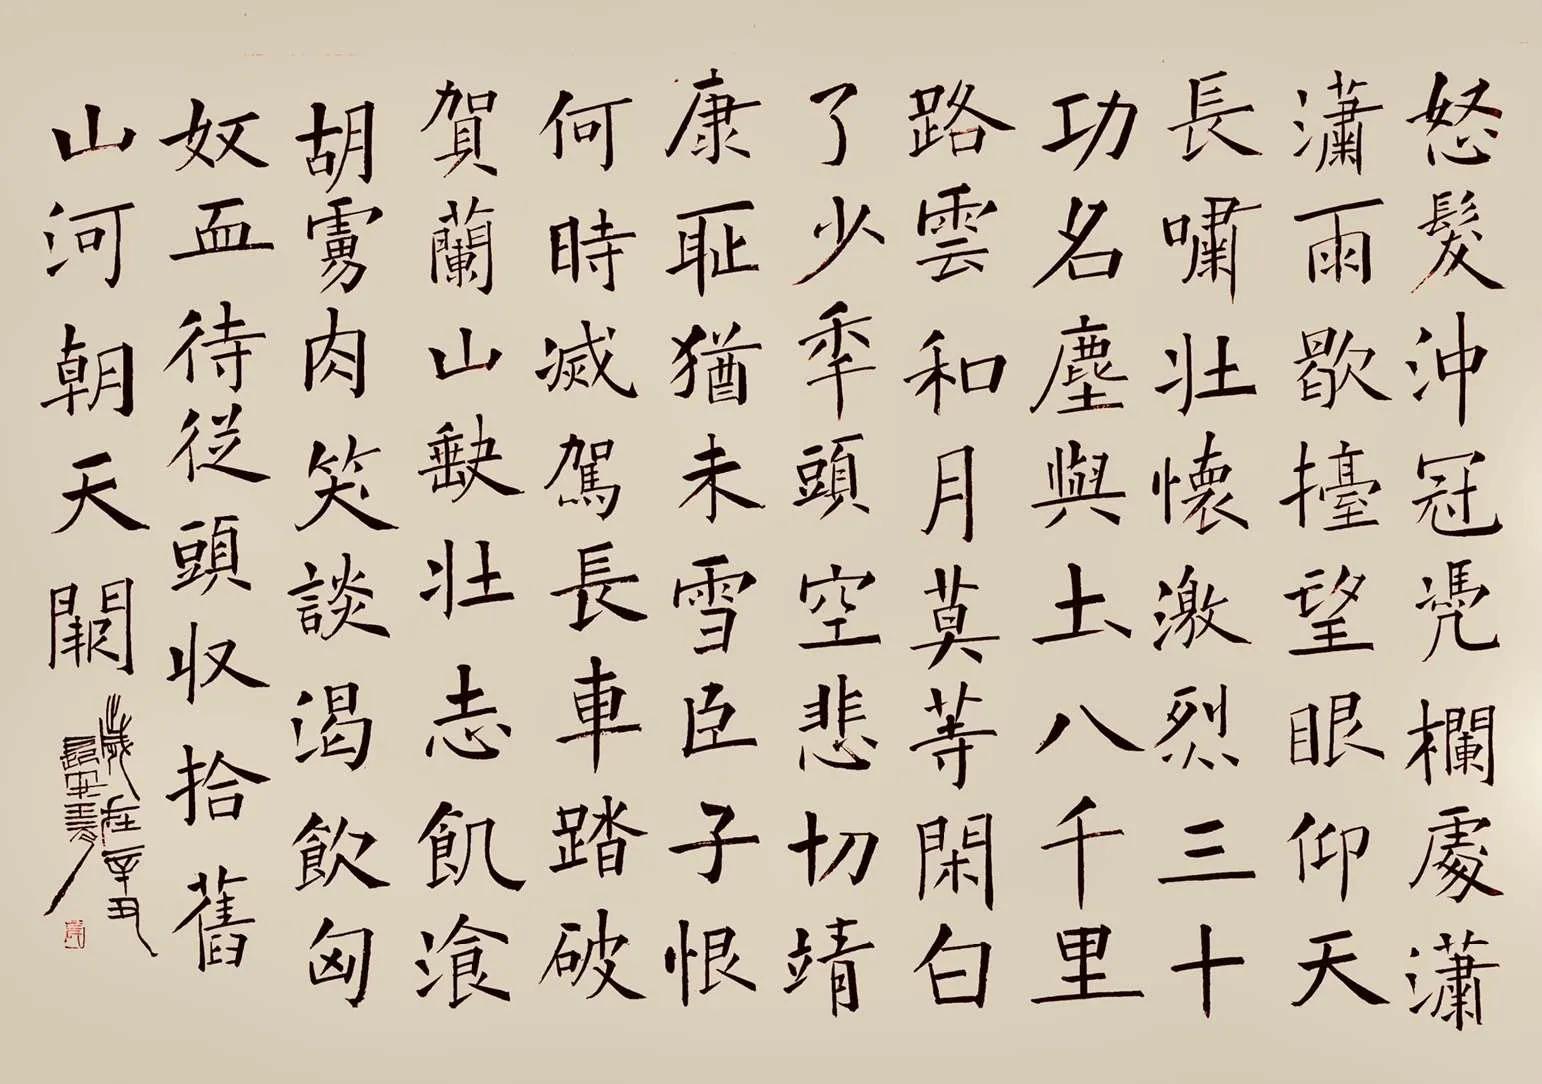 怒髮沖冠凴欄處瀟
瀟雨歇擡望眼仰天
長嘯壯懷激烈三十
功名塵與土八千里
路雲和月莫等閑白
了少秊頭空悲切靖
康耻猶未雪臣子恨
何時滅駕長車踏破
賀蘭山缺壯志飢湌
胡虜肉笑談渴飲匈
奴血待從頭収拾舊
山河朝天闕
歲在辛丑